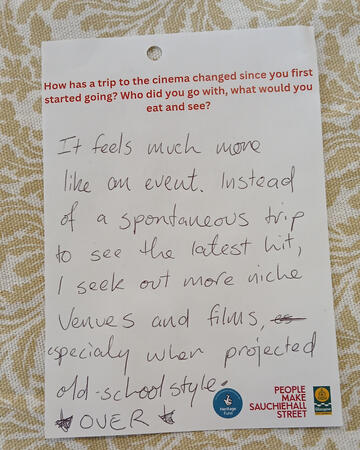 How has a trip to the cinema changed since you first
started going? Who did you go with, what would you
eat and see?
It feels much more
like an event. Instead
of a spontaneous trip
to see the latest hit,
I seek out more niche
venues and films, es
especialy when projected
old-school style.
OVER
Heritage
Fund
PEOPLE
MAKE
SAUCHIEHALL
STREET
Glasgow